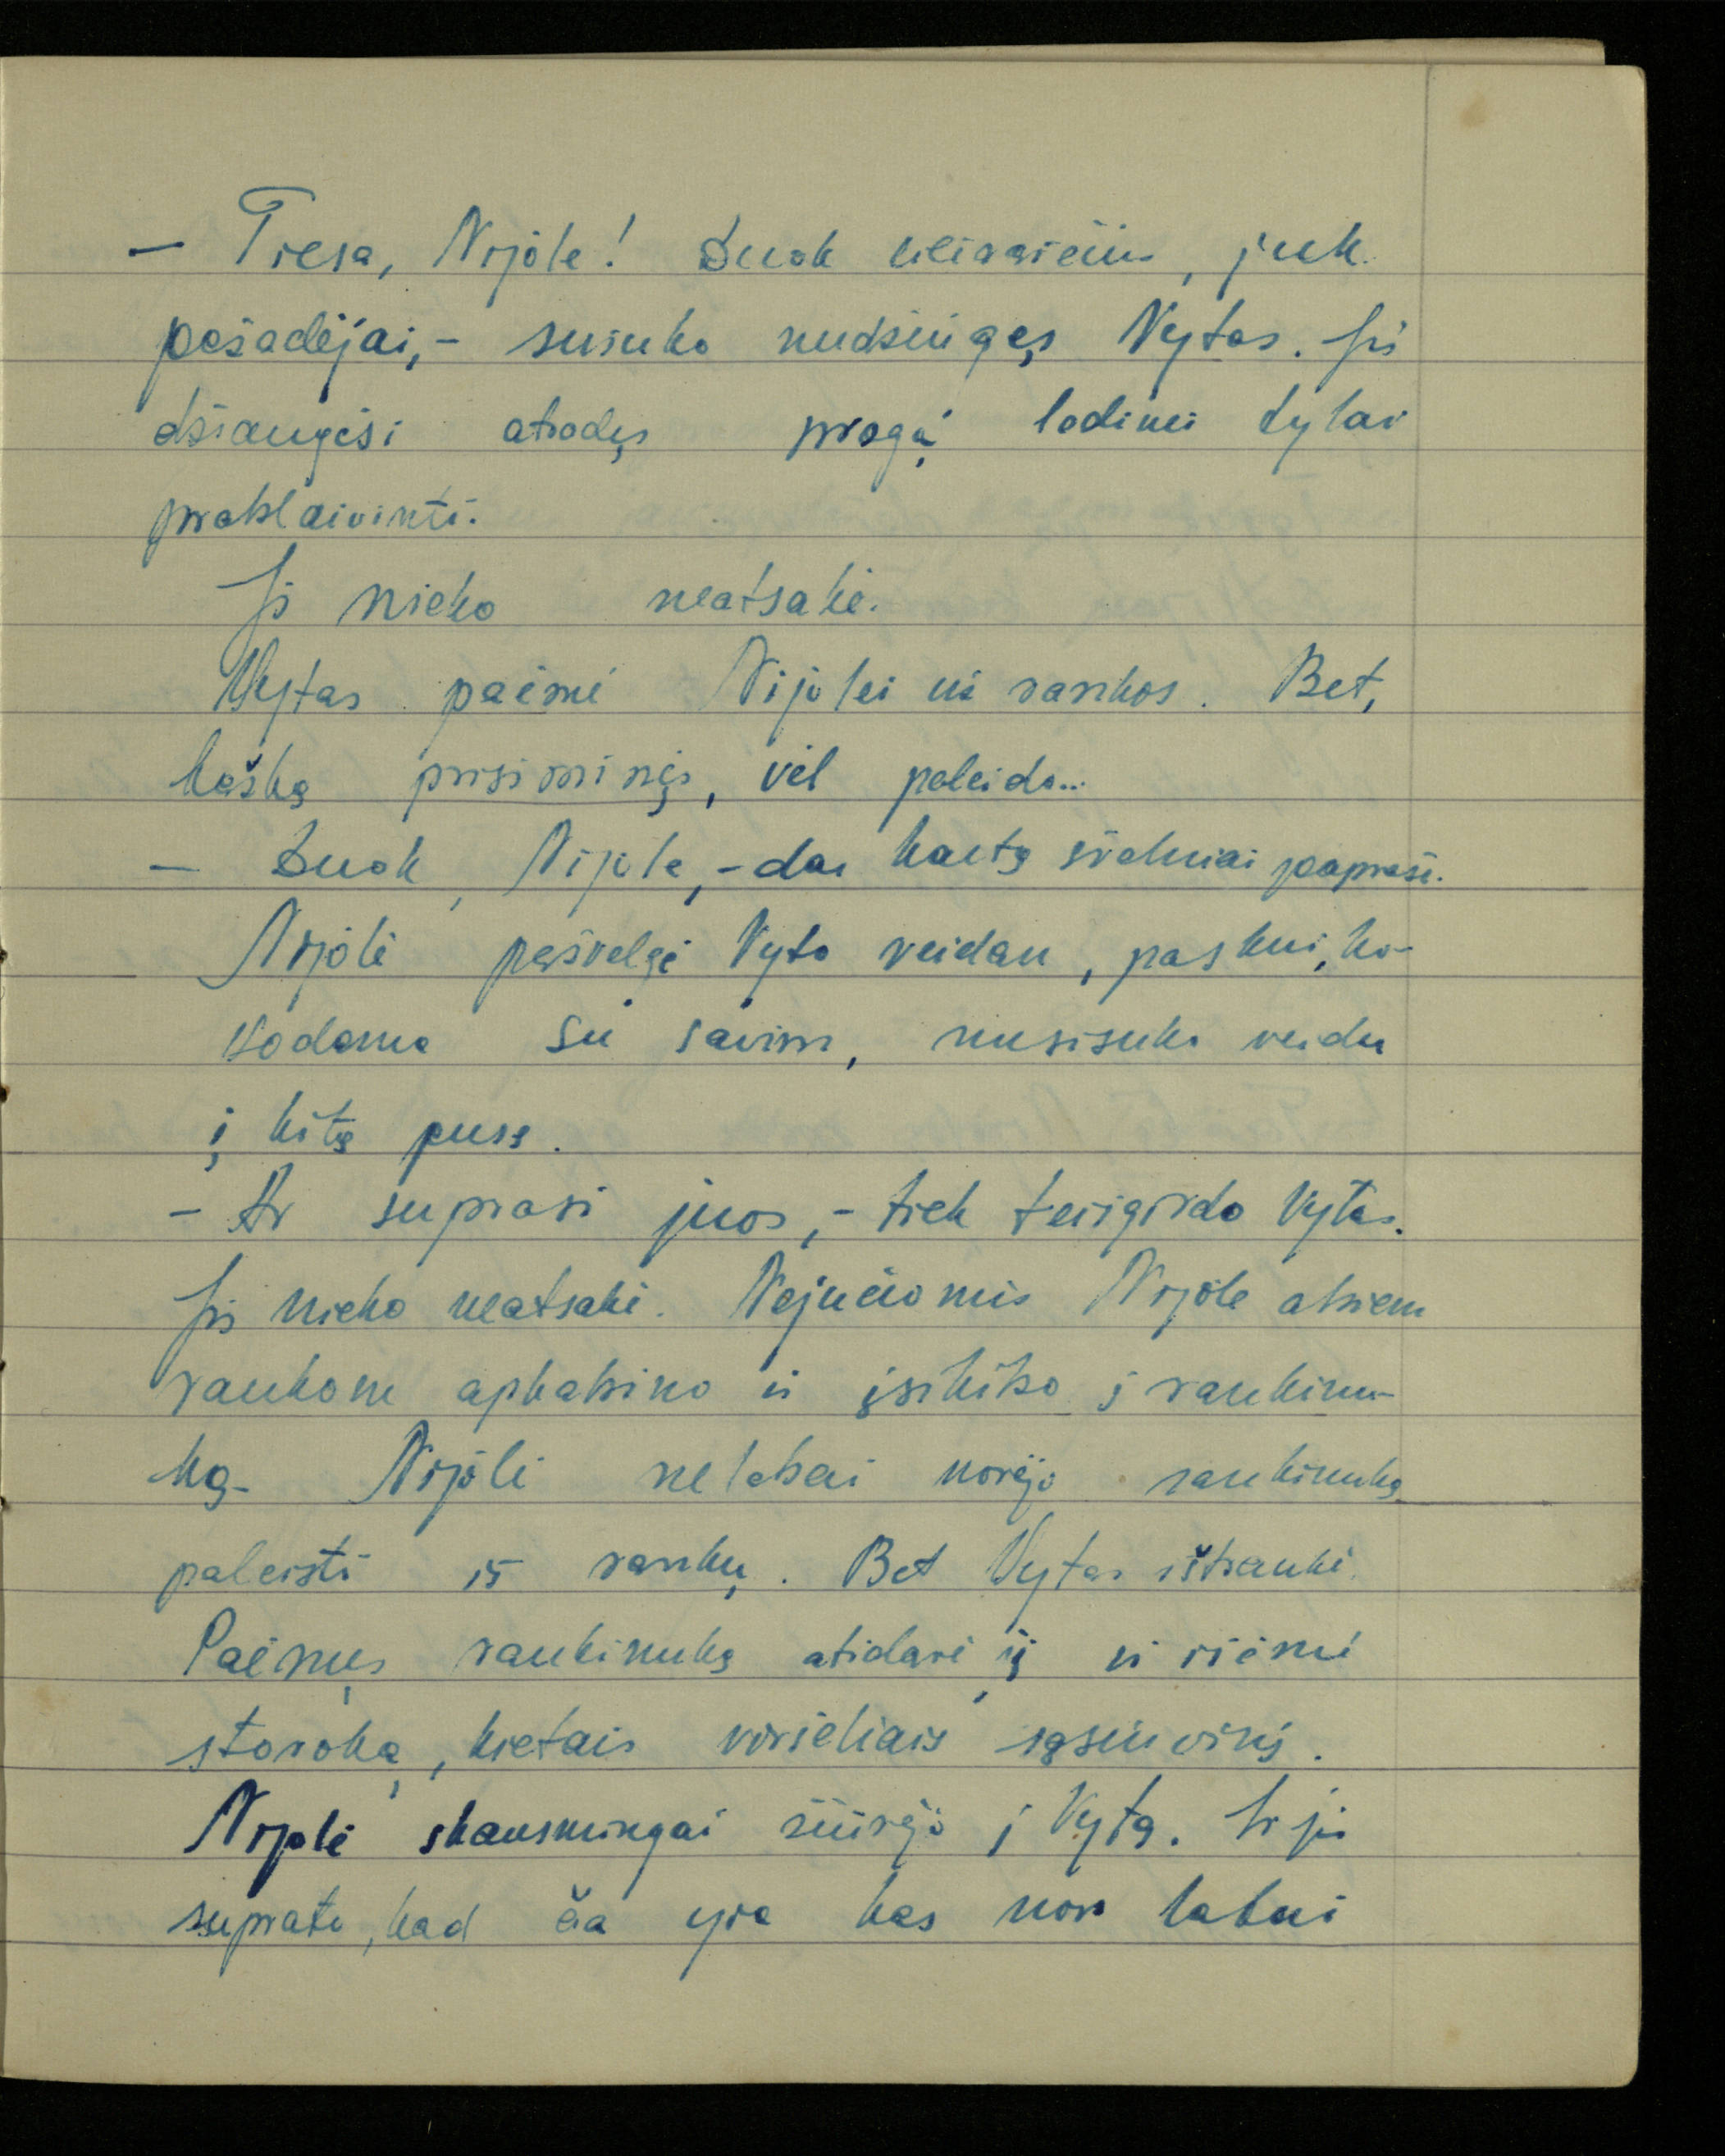 — Tiesa, Nijole! Duok užrašėlius, juk
pažadėjai,- sušuko nudžiugęs Vytas. Jis
džiaugėsi atradęs progą ledinei tylai
prablaivinti.
Ji nieko neatsakė.
Vytas paėmė Nijolei už rankos. Bet,
kažką prisiminęs, vėl paleido...
— Duok, Nijole,- dar kartą švelniai paprašė.
Nijolė pažvelgė Vyto veidan, paskui, ko-
vodama su savim, nusisuko veidu
į kitą pusę.
- Ar suprasi juos,- tiek teišgirdo Vytas.
Jis nieko neatsakė. Nejučiomis Nijolę abiem
rankom apkabino ir įsikibo į rankinu-
ką. Nijolė nelabai norėjo rankinuką
paleisti iš rankų. Bet Vytas ištraukė.
Paėmęs rankinuką atidarė jį ir išėmė
storoką, kietais viršeliais sąsiuvinį.
Nijolė skausmingai žiūrėjo į Vytą. Ir jis
suprato, kad čia yra kas nors labai